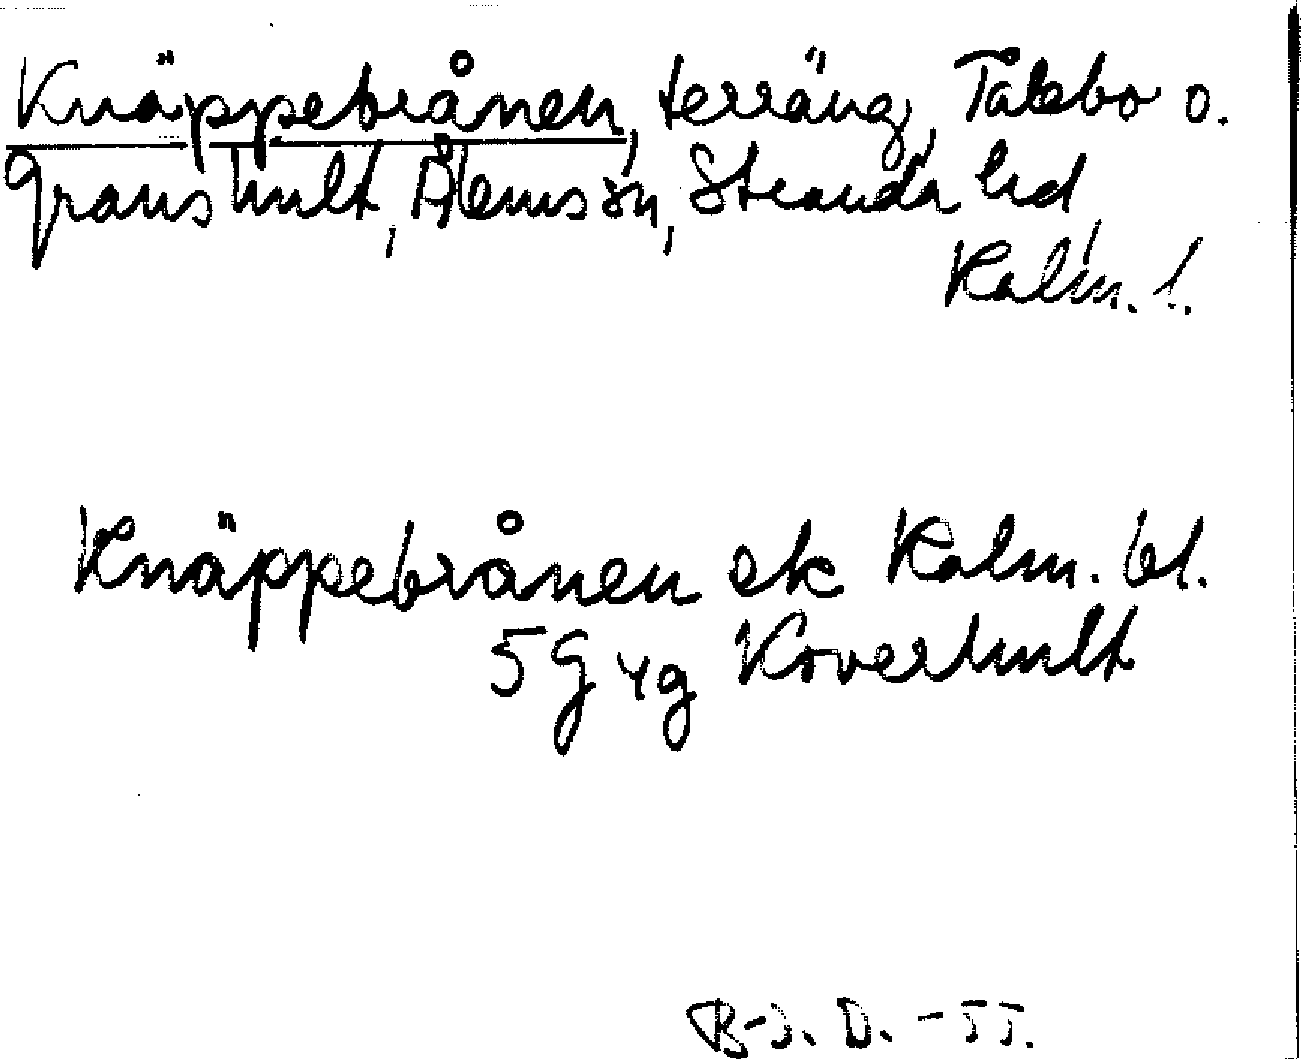 Knäppebrånen, terräng, Talebo o.
Granshult, Ålems sn, Stranda hd,
Kalm. l.
Knäppebrånen ek Kalm. bl.
5G 4g Kroverhult
B-J. D. -55.